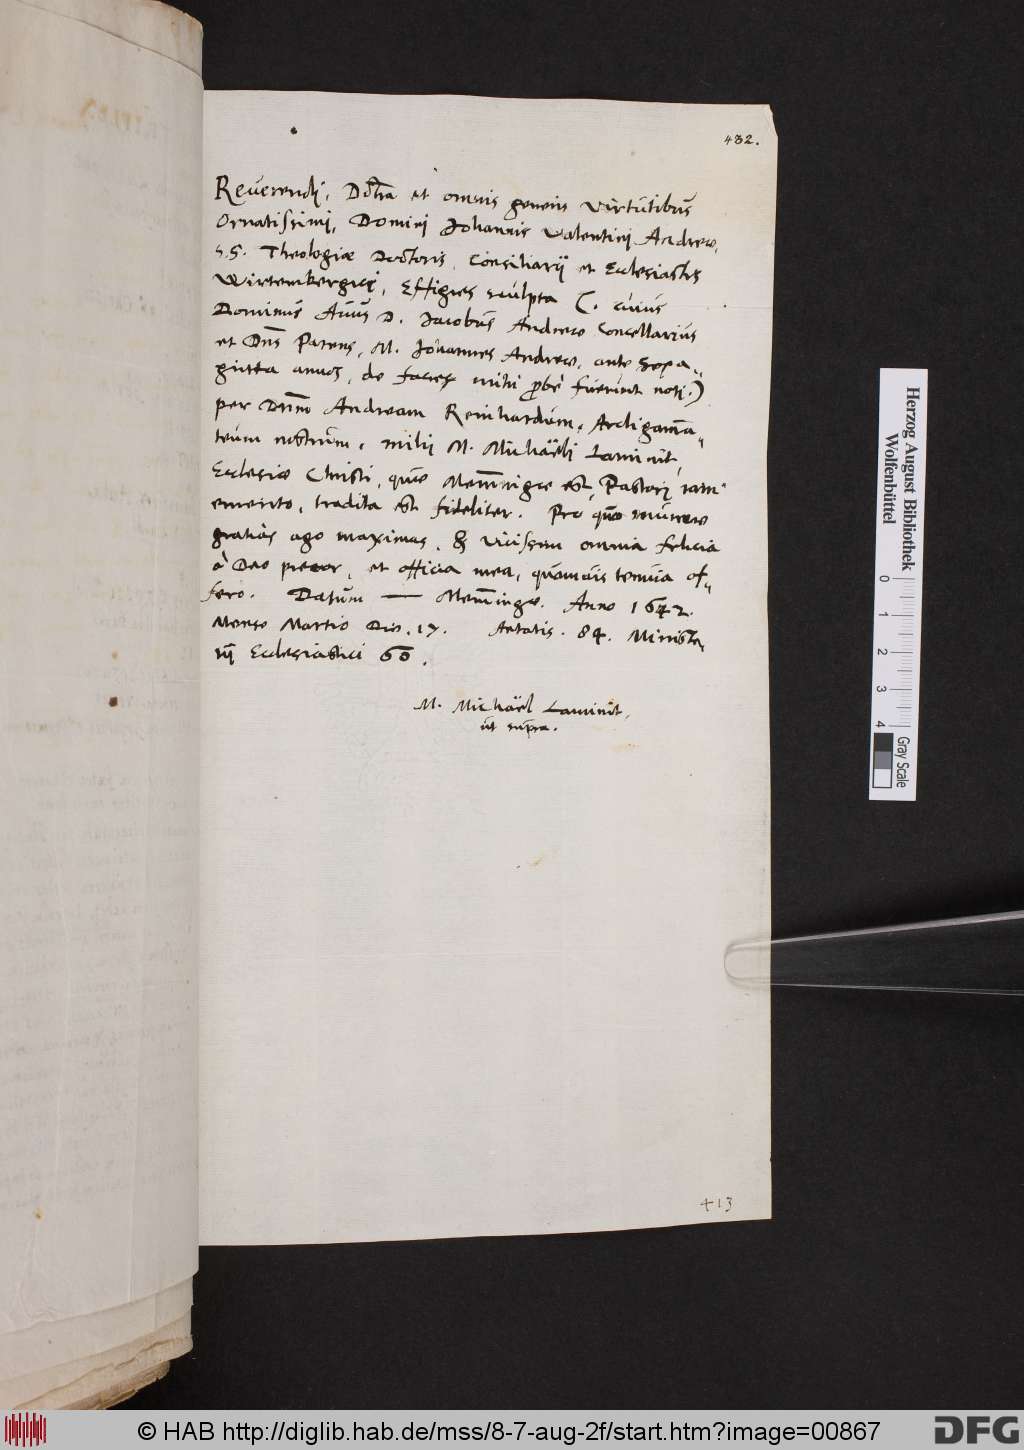 432.
Reverendi, Docta et omnis generis virtutibus
ornatissimi, Domini Johannis Valentini Andreæ,
S.S. Theologiæ Doctoris, Consiliarii et Ecclesiastis
Wirtembergici, Effigies sculpta (: cuius
Dominus Avus D. Jacobus Andreæ Concellarius
et Dns Parens, M. Johannes Andreæ, ante sexa-
ginta annos, de facie mihi probè fuerunt noti.)
per Dnm Andream Reinhardum, Archigramma-
teum nostrum, mihi M. Michaëli Laminit,
Ecclesiæ Christi, quæ Memmingæ est, Pastori iam
emerito, tradita est fideliter. Pro quo munere
gratias ago maximas, & vicissim omnia felicia
à Deo precor, et officia mea, quamvis tenuia of-
fero. Datum — Memmingæ. Anno 1642.
Mense Martio Die. 17. Aetatis. 84. Ministe-
rii Ecclesiastici 60.
M. Michaël Laminit,
ut supra.
413
Herzog August Bibliothek
Wolfenbüttel
0 1 2 3 4
Gray Scale
© HAB http://diglib.hab.de/mss/8-7-aug-2f/start.htm?image=00867
DFG